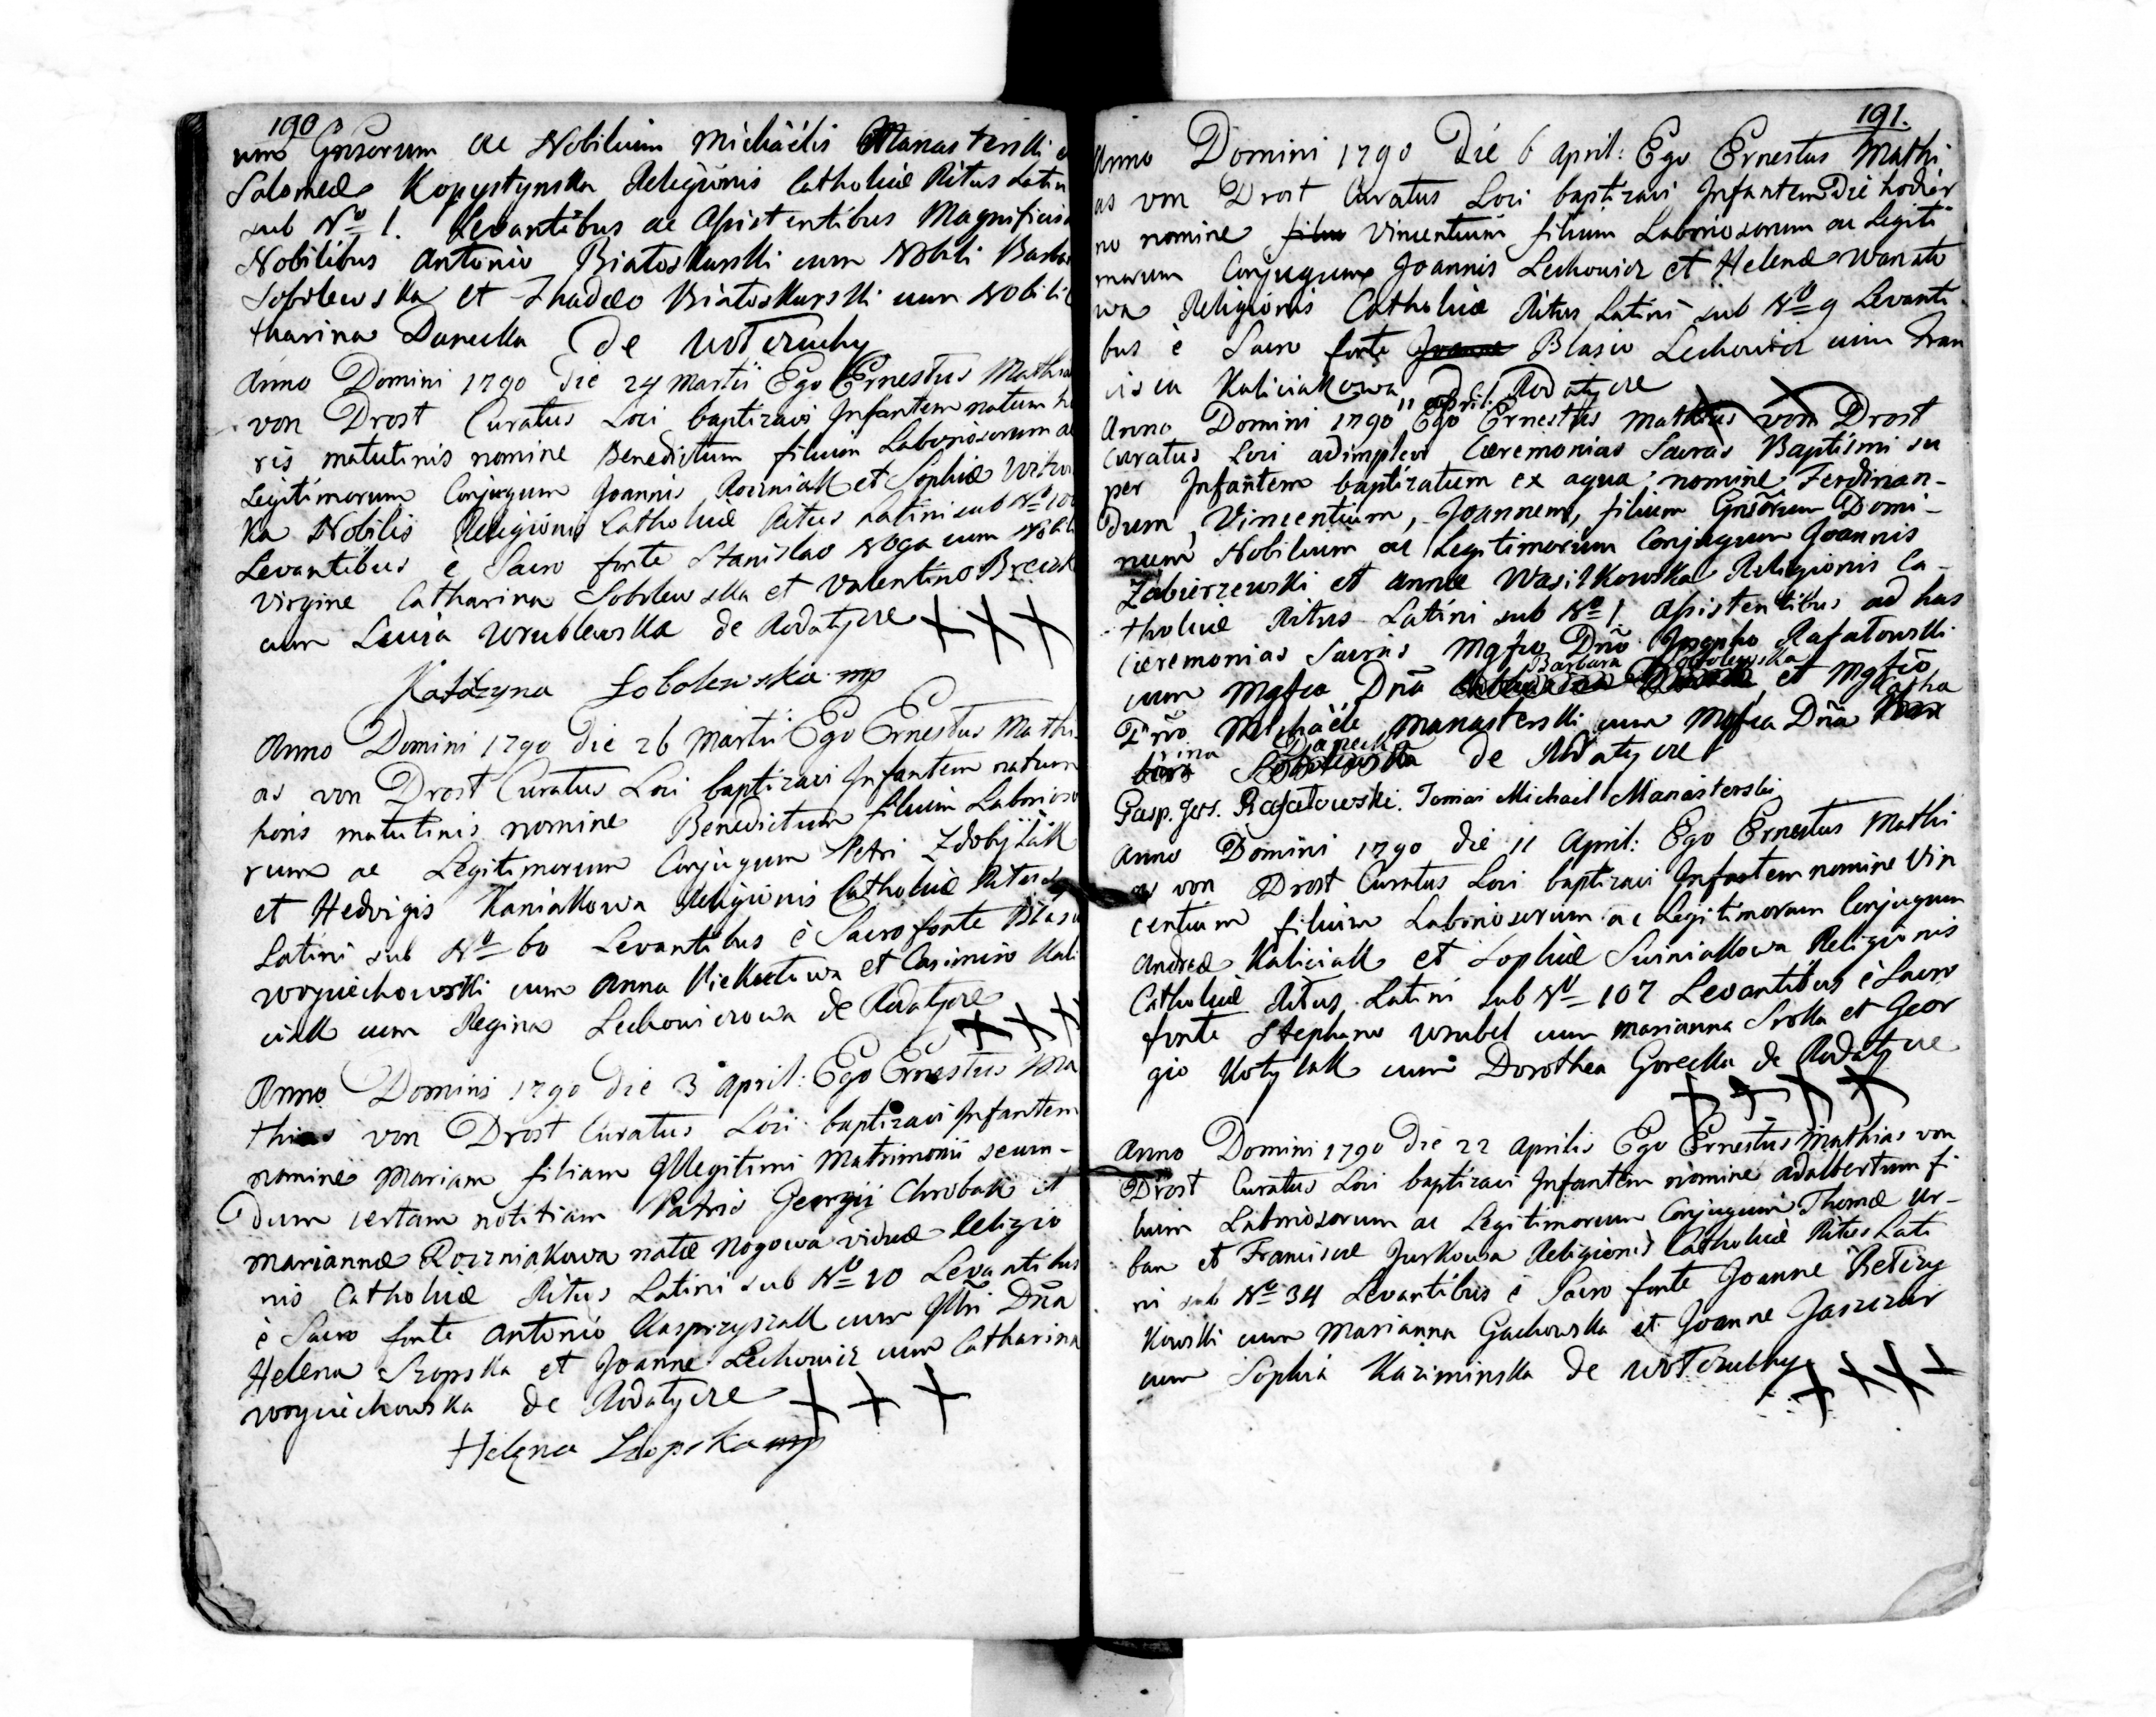 190
um Gnsorum ac Nobilium Michaëlis Manasterski e
Salomeæ Kopystynska Religionis Catholicæ Ritus Latin
sub Nro 1. Levantibus ac Assistentibus Magnificis
Nobilibus Antonio Białoskurski cum Nobili Barba
Sobolewska et Thadeo Białoskurski cum Nobili C
tharina Danecka de Wołczuchy
Anno Domini 1790 die 24 Martii Ego Ernestus Mathia
von Drost Curatus Loci baptizavi Infantem natum h
ris matutinis nomine Benedictum filium Laboriosorum ac
Legitimorum Conjugum Joannis Roczniak et Sophiæ
ka Nobilis Religionis Catholicæ Ritus Latini sub Nro 100
Levantibus è Sacro fonte Stanislao Noga cum Nobili
Virgine Catharina Sobolewska et Valentino
cum Lucia Wrublewska de Rodatyce +++
Katarzyna Sobolewska mp
Anno Domini 1790 die 26 Martii Ego Ernestus Mathi
as von Drost Curatus Loci baptizavi Infantem natum
horis matutinis nomine Benedictum filium Laborioso
rum ac Legitimorum Conjugum Petri Zdobylak
et Hedvigis Kaniakowa Religionis Catholicæ Ritus
Latini sub Nro 60 Levantibus è Sacro fonte Blasio
Woyciechowski cum Anna et Casimiro Kali
ciak cum Regina Lechowiczowa de Rodatyce
+++
Anno Domini 1790 die 3 April: Ego Ernestus Ma
thias von Drost Curatus Loci baptizavi Infantem
nomine Mariam filiam Illegitimi Matrimonii secun-
dum certam notitiam Patris Georgij Chrobak et
Mariannæ Roczniakowa natæ Nogowa viduæ Religio
nis Catholicæ Ritus Latini sub Nro 20 Levantibus
è Sacro fonte Antonio Kasprzyszak cum Dña
Helena Szopska et Joanne Lechowicz cum Catharina
Woyciechowska de Rodatyce +++
Helena Szopska mp
191.
Anno Domini 1790 Die 6 April: Ego Ernestus Mathi
as von Drost Curatus Loci baptizavi Infantem Die hodier
no nomine filiu Vincentium filium Laboriosorum ac Legiti
morum Conjugum Joannis Lechowicz et Helenæ Wanato
wa Religionis Catholicæ Ritus Latini sub Nro 9 Levanti
bus è Sacro fonte Joanne Blasio Lechowicz cum Fran
cisca Kaliciakowa de Rodatyce
Anno Domini 1790 11 April: Ego Ernestus Mathias von Drost
Curatus Loci adimplevi Cæremonias Sacras Baptismi su
per Infantem baptizatum ex aqua nomine Ferdinan-
dum, Vincentium, Joannem, filium Gnsorum Domi-
num Nobilium ac Legitimorum Conjugum Joannis
Zabierzewski et Annæ Wasilkowska Religionis Ca-
tholicæ Ritus Latini sub Nro 1. Assistentibus ad has
Cæremonias Sacras Mgfco Dño Josepho Rafałowski
cum Mgfca Dña Barbara Sobolewska et Mgfco
Dño Michaële Manasterski cum Mgfca Dña Catha
rina Danecka de Rodatyce
Gasp. Jos. Rafałowski. Tomasz Michail Manasterski
Anno Domini 1790 die 11 April: Ego Ernestus Mathi
as von Drost Curatus Loci baptizavi Infantem nomine Vin
centium filium Laboriosorum ac Legitimorum Conjugum
Andreæ Kaliciak et Sophiæ Suiniakowa Religionis
Catholicæ Ritus Latini sub Nro 107 Levantibus è Sacro
fonte Stephano Wrubel cum Marianna Sroka et Geor
gio Kotylak cum Dorothea Gorecka de Rodatyce
++++
Anno Domini 1790 die 22 Aprilis Ego Ernestus Mathias von
Drost Curatus Loci baptizavi Infantem nomine Adalbertum fi
lium Laboriosorum ac Legitimorum Conjugum Thomæ Ur-
ban et Franciscæ Jurkowa Religionis Catholicæ Ritus Lati
ni sub Nro 34 Levantibus è Sacro fonte Joanne Retczy
kowski cum Marianna Gachowska et Joanne Jaszczur
cum Sophia Kaziminska de Wołczuchy ++++